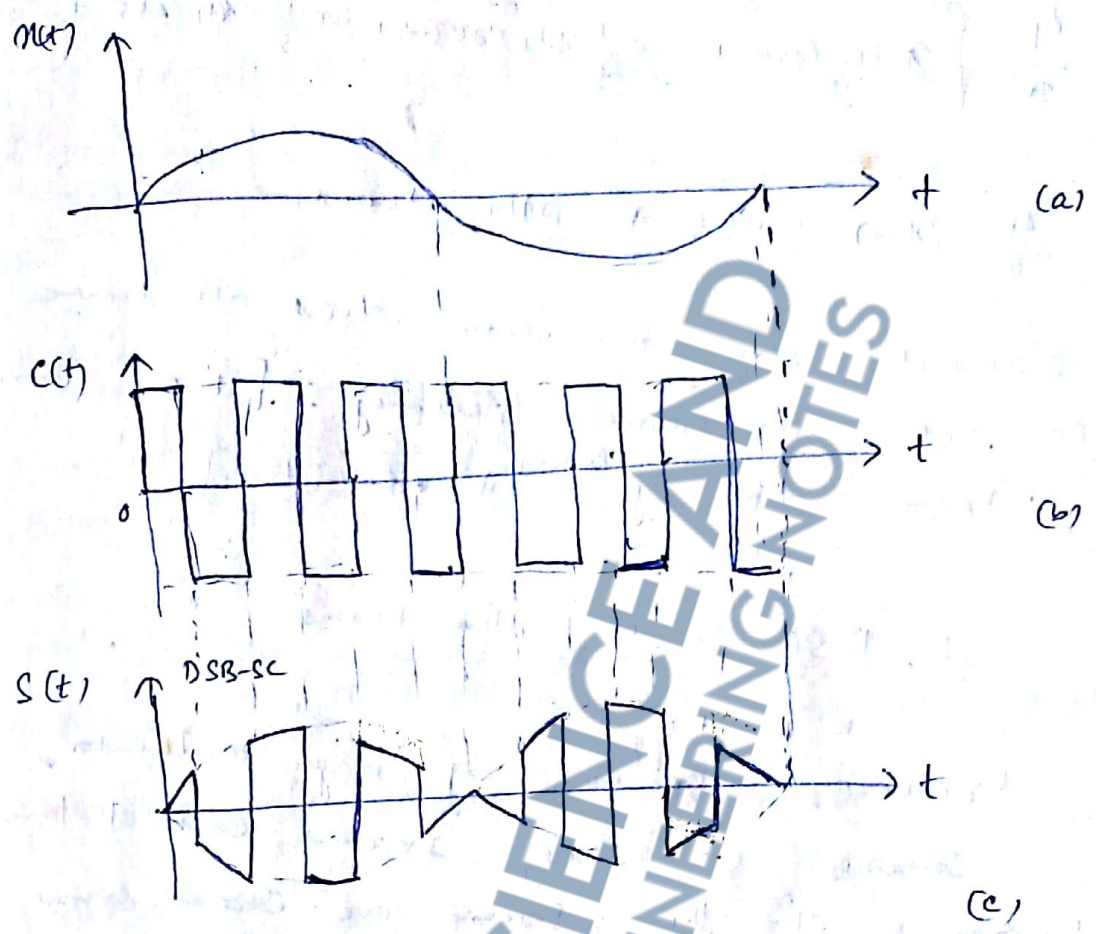 x(t)
t
(a)
c(t)
t
0
(b)
S(t)
DSB-SC
t
(c)
SCIENCE AND
ENGINEERING NOTES